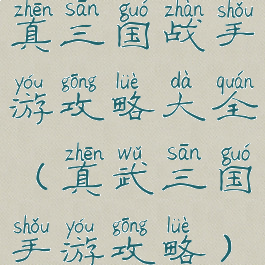 zhēn sān guó zhàn shǒu
真三国战手
yóu gōng lüè dà quán
游攻略大全
zhēn wǔ sān guó
（真武三国
shǒu yóu gōng lüè
手游攻略）